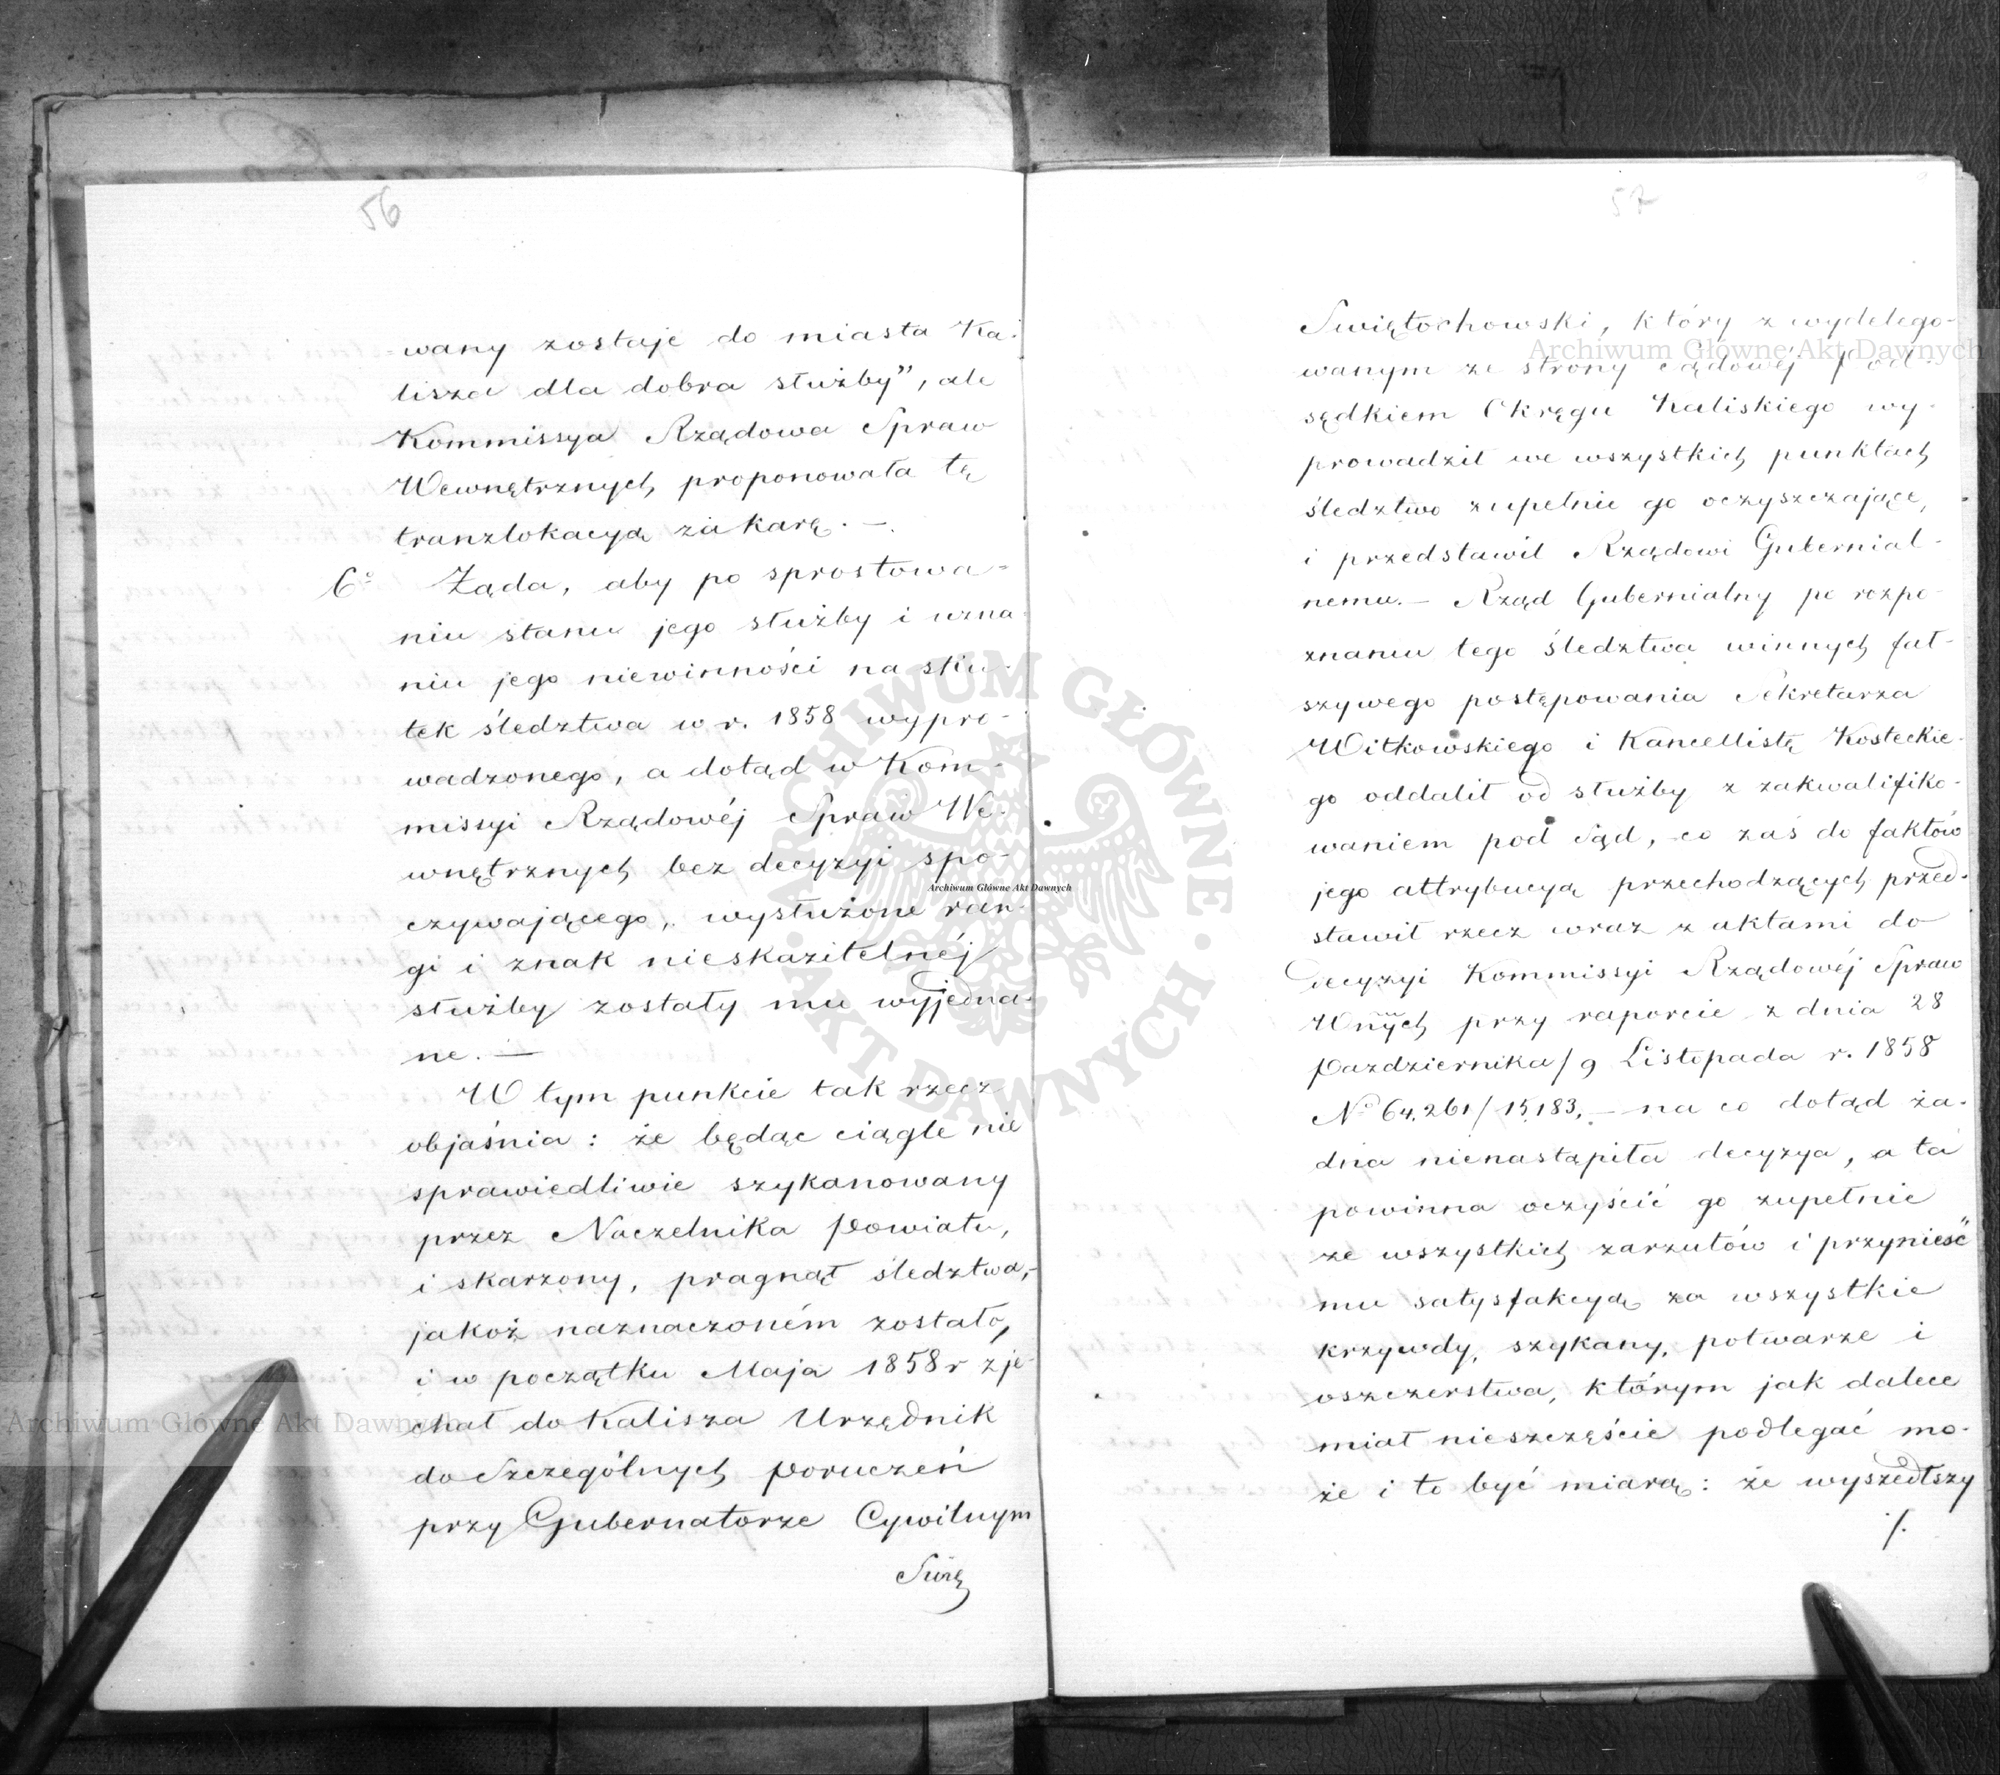 56
wany zostaje do miasta Ka-
lisza dla dobra służby", ale
Kommissya Rządowa Spraw
Wewnętrznych proponowała tę
tranzlokacyą za karę. —
6° Żąda, aby po sprostowa=
niu stanu jego służby i uzna-
niu jego niewinności na sku-
tek śledztwa w r. 1858 wypro-
wadzonego, a dotąd w Kom-
missyi Rządowéj Spraw We-
wnętrznych bez decyzyi spo-
czywającego, wysłużone ran-
gi i znak nieskazitelnéj
służby zostały mu wyjedna-
ne. —
W tym punkcie tak rzecz
objaśnia: że będąc ciągle nie
sprawiedliwie szykanowany
przez Naczelnika Powiatu,
i skarzony, pragnął śledztwa,-
jakoż naznaczoném zostało,
i w początku Maja 1858 r zje-
chał do Kalisza Urzędnik
do Szczególnych Poruczeń
przy Gubernatorze Cywilnym
Swię
57
Swiętochowski, który z wydelego-
wanym ze strony Sądowéj Pod-
sędkiem Okręgu Kaliskiego wy-
prowadził we wszystkich punktach
śledztwo zupełnie go oczyszczające,
i przedstawił Rządowi Gubernial-
nemu. — Rząd Gubernialny po rozpo-
znaniu tego śledztwa winnych fał-
szywego postępowania Sekretarza
Witkowskiego i Kancellistę Kosteckie-
go oddalił od służby z zakwalifiko-
waniem pod Sąd, co zaś do faktów
jego attrybucyą przechodzących przed-
stawił rzecz wraz z aktami do
Decyzyi Kommissyi Rządowéj Spraw
Wnych przy raporcie z dnia 28
Pazdziernika/9 Listopada r. 1858
N° 64,261/15,183, — na co dotąd ża-
dna nienastąpiła decyzya, a ta
powinna oczyścić go zupełnie
ze wszystkich zarzutów i przynieść
mu satysfakcyą za wszystkie
krzywdy, szykany, potwarze i
oszczerstwa, którym jak dalece
miał nieszczęście podlegać mo-
że i to być miarą: że wyszedłszy
./.
Archiwum Główne Akt Dawnych
ARCHIWUM GŁÓWNE AKT DAWNYCH
Archiwum Główne Akt Dawnych
Archiwum Główne Akt Dawnych